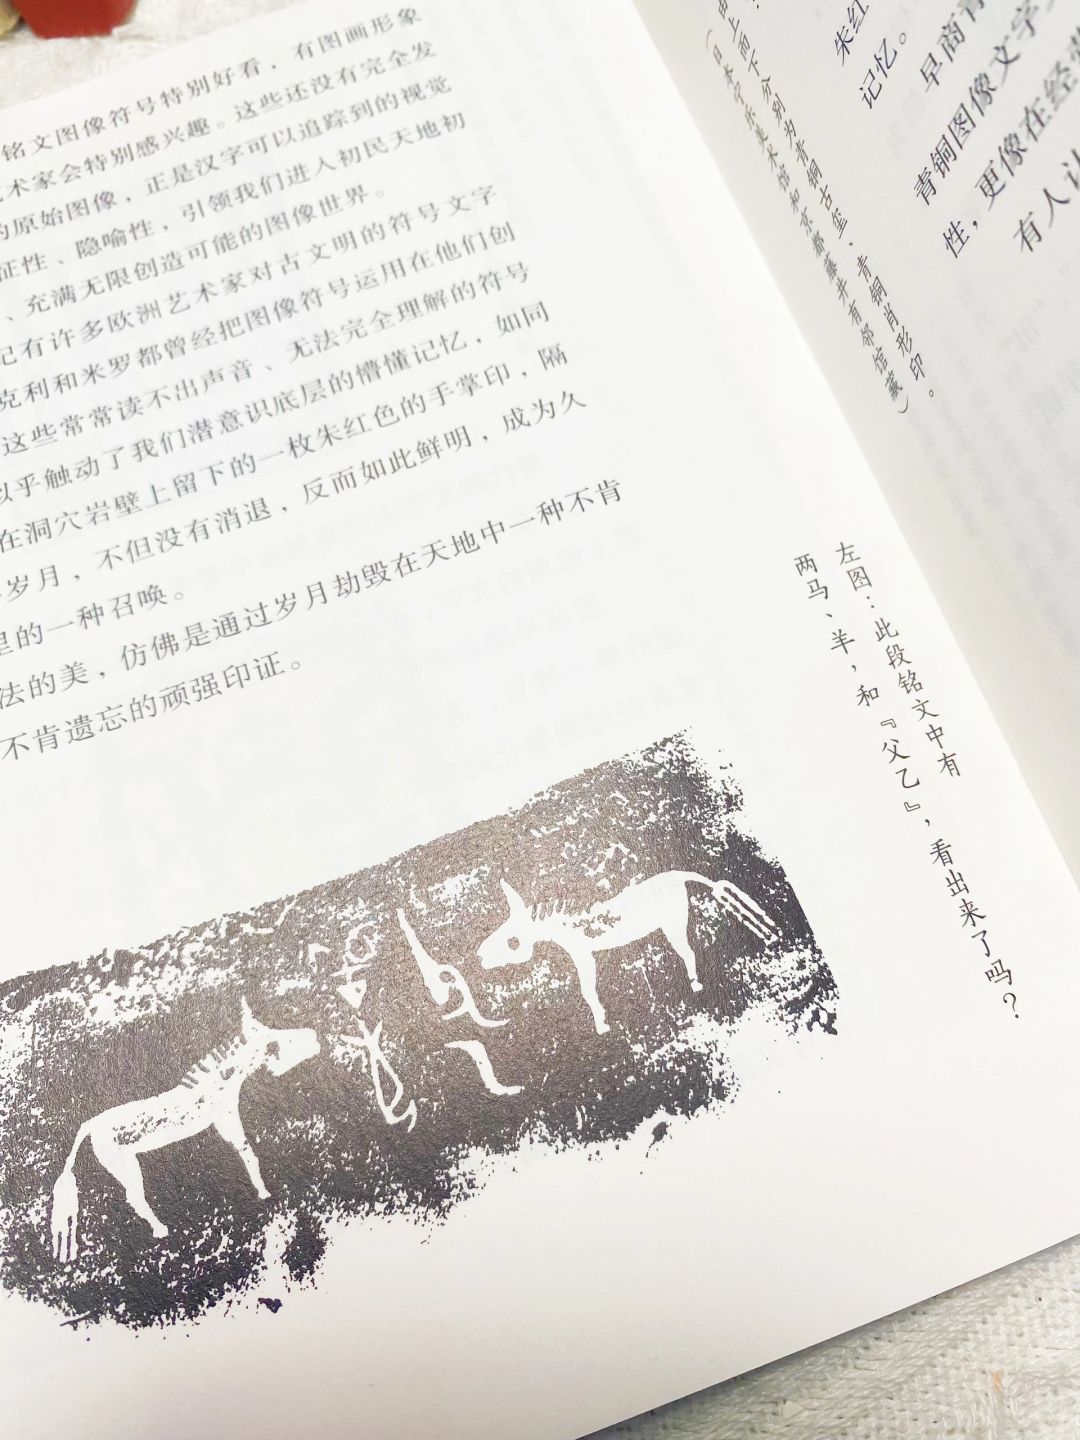 铭文图像符号特别好看，有图画形象
艺术家会特别感兴趣。这些还没有完全发
的原始图像，正是汉字可以追踪到的视觉
征性、隐喻性，引领我们进入初民天地初
、充满无限创造可能的图像世界。
记有许多欧洲艺术家对古文明的符号文字
克利和米罗都曾经把图像符号运用在他们创
这些常常读不出声音、无法完全理解的符号
以乎触动了我们潜意识底层的懵懂记忆，如同
在洞穴岩壁上留下的一枚朱红色的手掌印，隔
岁月，不但没有消退，反而如此鲜明，成为久
里的一种召唤。
法的美，仿佛是通过岁月劫毁在天地中一种不肯
不肯遗忘的顽强印证。
左图：此段铭文中有
两马、羊，和『父乙』，看出来了吗？
由上而下分别为青铜古玺、青铜肖形印。
（日本宁乐美术馆和京都藤井有邻馆藏）
朱红
记忆。
早商青
青铜图像文字
性，更像在经营
有人认